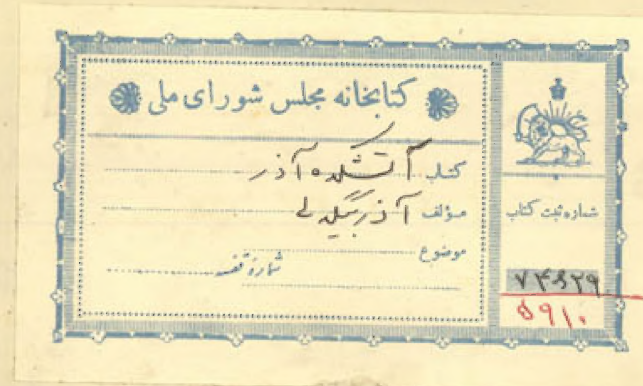 کتابخانه مجلس شورای ملی
کتاب آتشکده آذر
مؤلف آذر بیگدلی
موضوع
شماره قفسه
شماره ثبت کتاب
۵۹۱۰